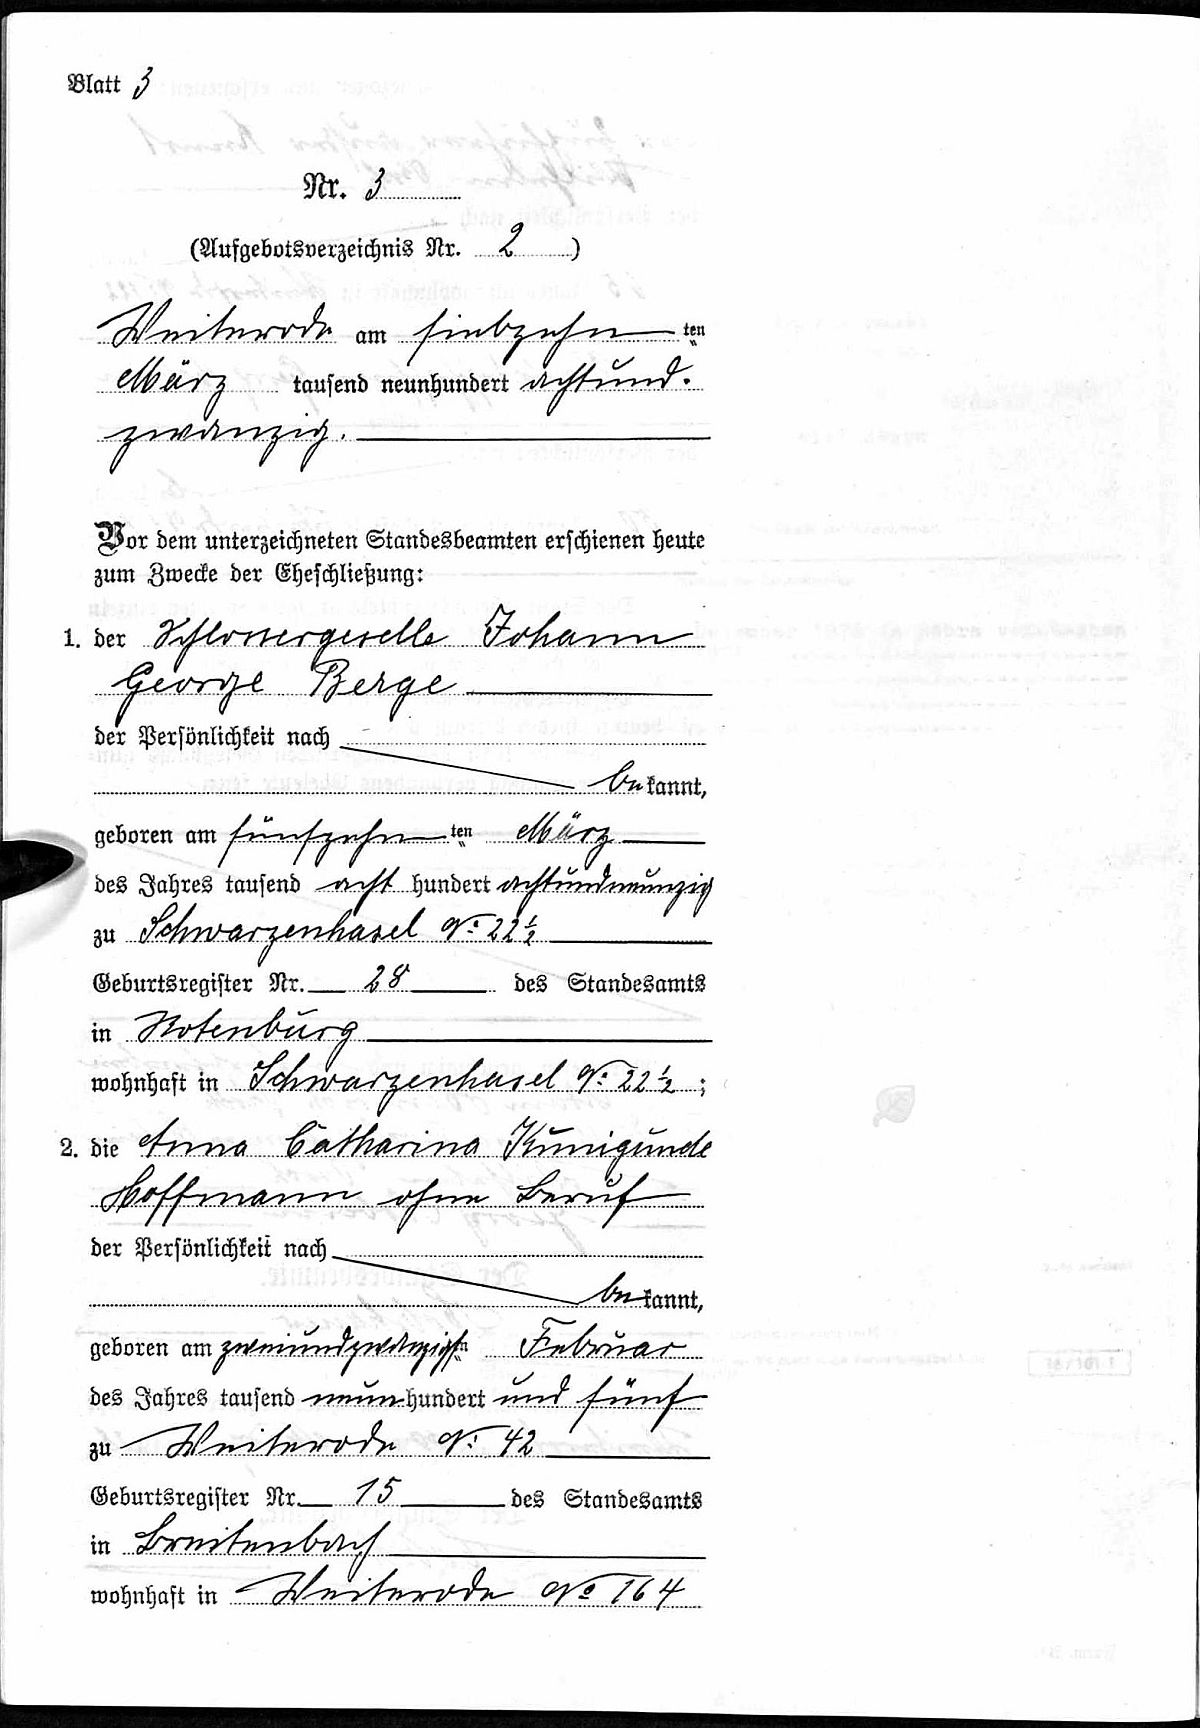 Blatt 3
Nr. 3
(Aufgebotsverzeichnis Nr. 2 )
Weiterode am siebzehn ten
März tausend neunhundert achtund-
zwanzig.
Vor dem unterzeichneten Standesbeamten erschienen heute
zum Zwecke der Eheschließung:
1. der Schlossergeselle Johann
George Berge
der Persönlichkeit nach
be kannt,
geboren am fünfzehn ten März
des Jahres tausend acht hundert achtundneunzig
zu Schwarzenhasel No. 22½
Geburtsregister Nr. 28 des Standesamts
in Rotenburg
wohnhaft in Schwarzenhasel No. 22½ ;
2. die Anna Catharina Kunigunde
Hoffmann ohne Beruf
der Persönlichkeit nach
be kannt,
geboren am zweiundzwanzigsten Februar
des Jahres tausend neun hundert und fünf
zu Weiterode No. 42
Geburtsregister Nr. 15 des Standesamts
in Breitenbach
wohnhaft in Weiterode No 164